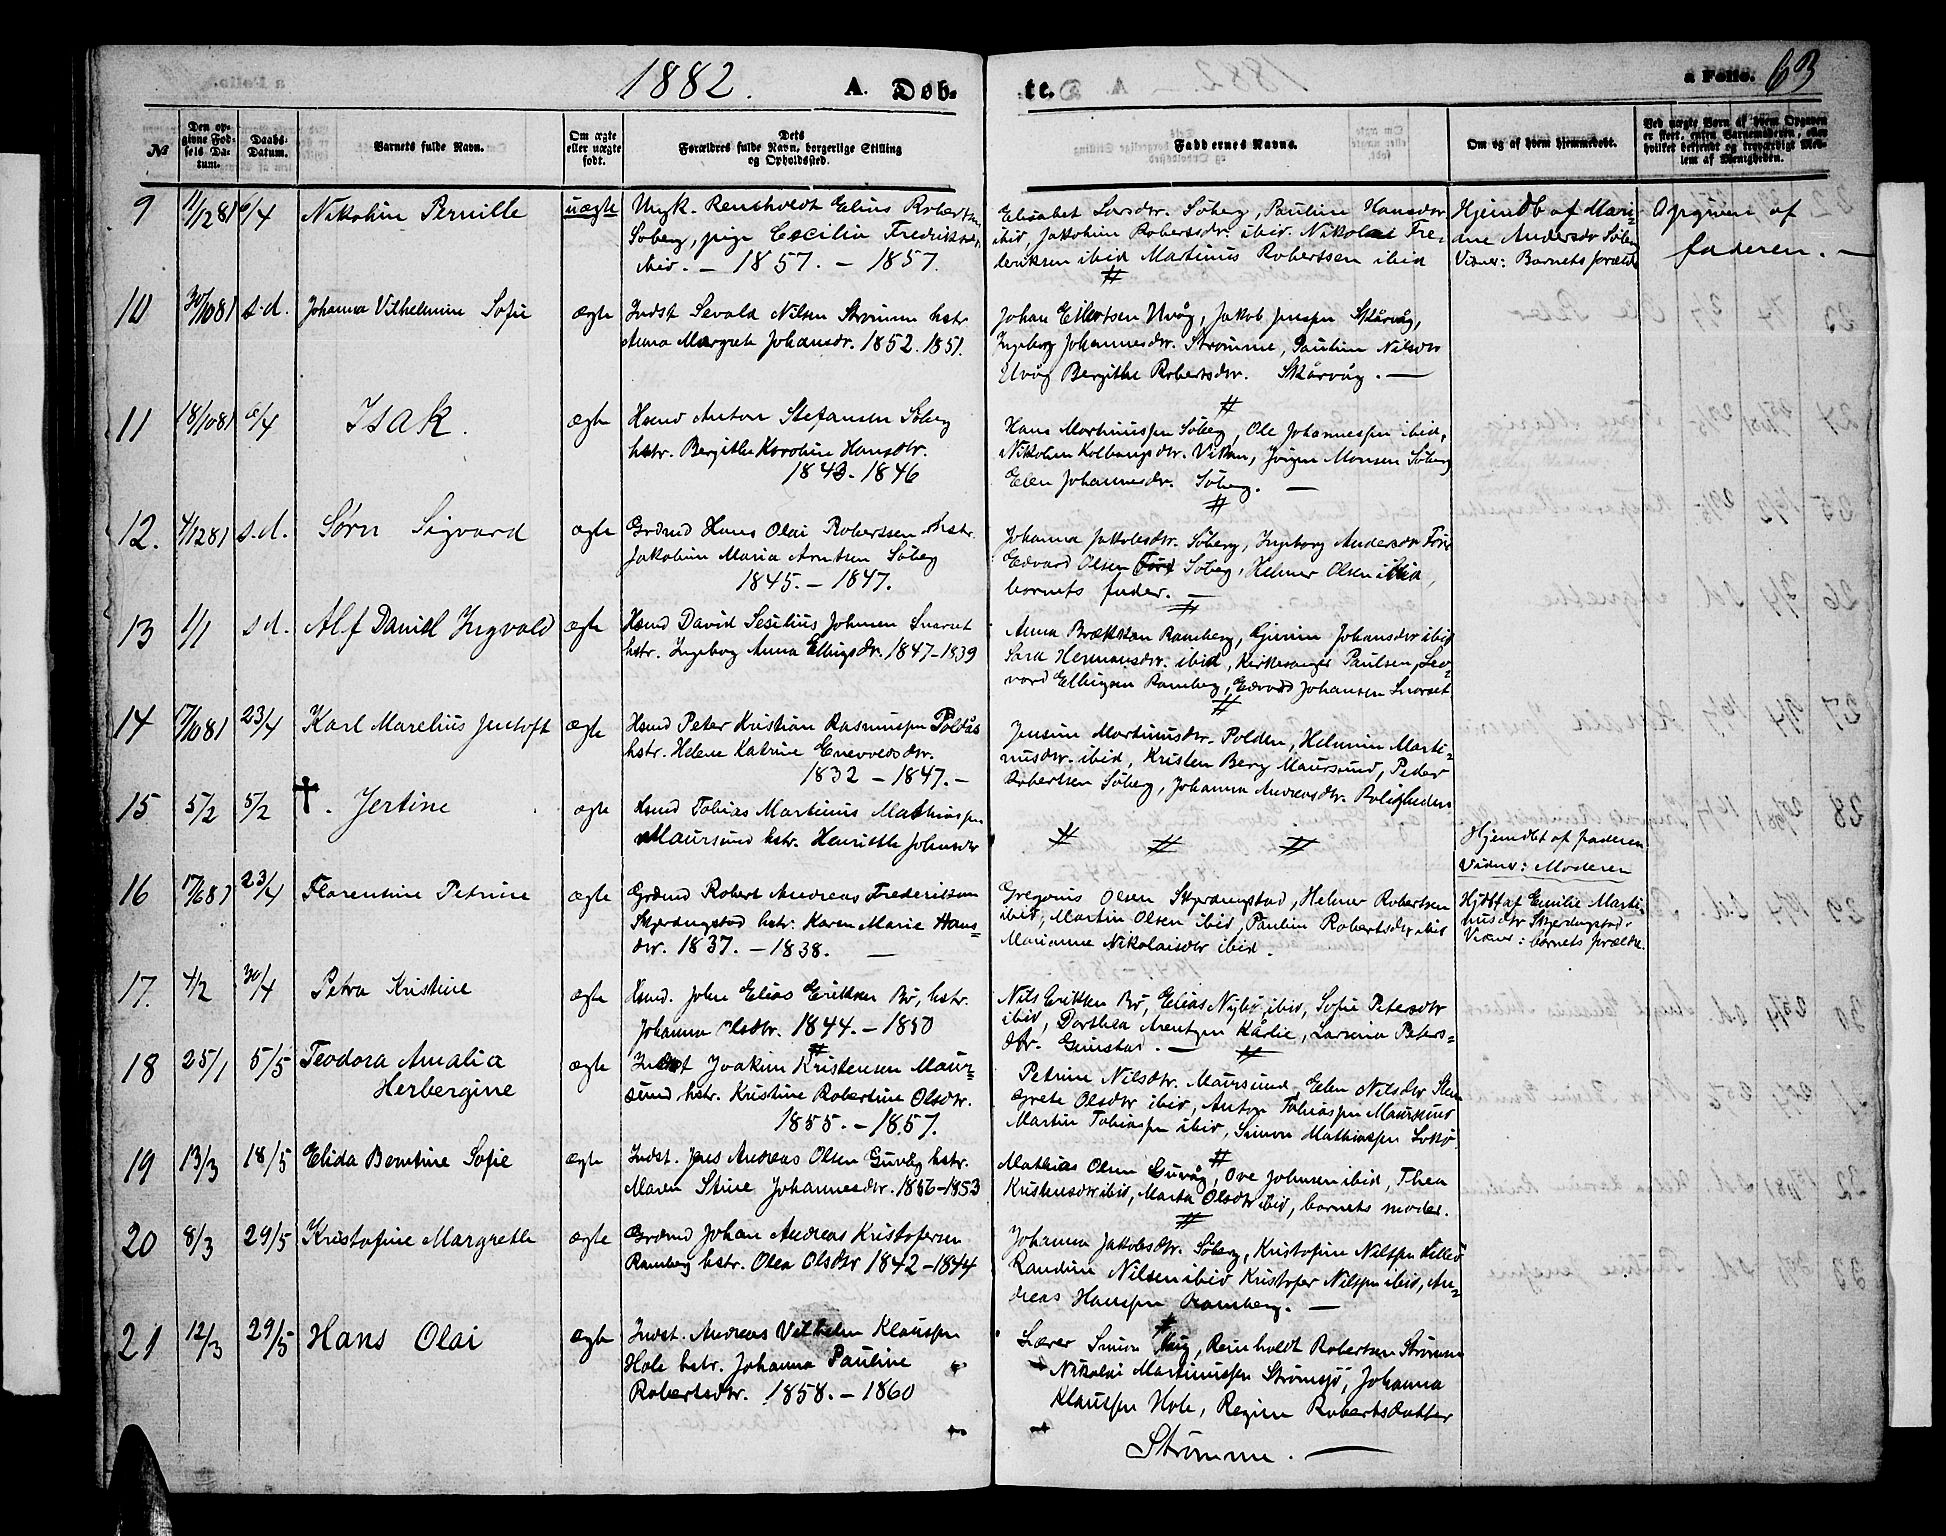 1882. A. Døb-
te. a Folio. 63
№ Den opgivne Fødsels Datum. Daabs-Datum. Barnets fulde Navn. Om ægte eller uægte født. Dets Forældres fulde Navn, borgerlige Stilling og Opholdssted.
Faddernes Navne. Om og af hvem hjemmedøbt. Ved uægte Børn af hvem Opgaven er skeet, enten Barnemoderen, eller hvilket bekjendt og troværdigt Medlem af Menigheden.
9 11/12 81 6/4 Nikoline Pernille uægte Ungk. Renholdt Elius Robertsen
Søberg, pige Cecilia Fredriksdr
ibid. – 1857. – 1857.
Elisabet Larsdtr. Søberg, Pauline Hansdtr
ibid, Jakobine Robertsdr ibid. Nikolai Fre-
deriksen ibid Martinus Robertsen ibid
Hjemdb af Mari-
ane Andersdr Søberg
Vidner: Barnets forældre
Opgiven af
faderen. –
10 30/10 81 s.d. Johanna Vilhelmine Sofie ægte Indst Sevald Nilsen Strømme hstr
Anna Margrete Johansdr. 1852. 1851.
Johan Eilertsen Uvåg, Jakob Jenssen Skårvåg,
Ingeborg Johannesdtr. Strømme, Pauline Nilsdtr
Uvåg Bergithe Robertsdtr. Skårvåg. –
11 18/10 81 6/4 Isak. ægte Hsmd Anton Stefansen Søberg
hstr. Bergithe Karoline Hansdtr.
1843. 1846
Hans Martinussen Søberg, Ole Johannessen ibid,
Nikoline Kolbansdtr. Vikan, Jørgen Monsen Søberg
Elen Johannesdr. Søberg. –
12. 4/12 81 s.d. Sørn Sigvard ægte Grdmd Hans Olai Robertsen hstr.
Jakobine Maria Arntsen Søberg
1845. – 1847.
Johanna Jakobsdtr. Søberg, Ingeborg Andersdtr
Edvard Olsen Søberg, Helmer Olsen ibid,
barnets fader. –
13 1/1 s.d. Alf Daniel Ingvald ægte Hsmd David Sesilius Johnsen Snarset
hstr. Ingeborg Anna Ellingsdr. 1847–1839
Anna Brækkan Ramberg, Johansdtr ibid
Sara Hermansdtr. ibid, Kirkesanger Paulsen, Sev-
vard Ellingsen Ramberg, Edvard Johansen Snarset
14 17/10 81 23/4 Karl Marelius Jentoft ægte Hsmd Peter Kristian Rasmussen Poldås
hstr. Helene Katrine Enevoldsdtr.
1832 – 1847. –
Jensine Martinusdtr. Polden, Helmine Marti-
nusdtr. ibid, Kristen Berg Maursund, Peder
Robertsen Søberg, Johanna Andreasdtr. Roligheden
15 5/2 5/2 †. Jertine ægte Hsmd Tobias Martinus Mathiassen
Maursund hstr. Henriette Johnsdtr
Hjemdbt af faderen
Vidne: Moderen
16 17/6 81 23/4 Florentine Petrine ægte Grdmd Robert Andreas Frederiksen
Skjerdingstad hstr. Karen Marie Hans-
dtr. 1837. – 1838. –
Gregorius Olsen Skjerdingstad, Helmer Robertsen
ibid, Martin Olsen ibid, Pauline Robertsdtr ibid
Marianne Nikolaisdtr ibid.
Hjdbt af Emilie Marti-
nusdtr Skjerdingstad.
Vidner: barnets forældre.
17. 4/2 30/4 Petra Kristine ægte Hsmd. John Elias Eriksen Bø, hstr.
Johanna Olsdtr. 1844. – 1850
Nils Eriksen Bø, Elias Nybø, ibid, Sofie Petersdtr
ibid, Dorthea Arentzen Kålie, Larsina Peters-
dtr. Gimstad. –
18 25/1 5/5 Teodora Amalia
Herbergine ægte Indst Joakim Kristensen Maur-
sund hstr. Kristine Robertine Olsdtr.
1855. – 1857.
Petrine Nilsdtr. Maursund, Elen Nilsdtr
grete Olsdtr ibid, Anton Tobiassen Maursund
Martin Tobiassen ibid, Simon Mathiassen
19 13/3 18/5 Elida Berntine Sofie ægte Indst. Jens Andreas Olsen Guvåg hstr.
Maren Stine Johannesdtr. 1856–1853
Mathias Olsen Guvåg, Ove Johnsen ibid, Thea
Kristensdtr ibid, Marta Olsdtr ibid, barnets moder.
20 8/3 29/5 Kristofine Margrethe ægte Grdmd Johan Andreas Kristofersen
Ramberg hstr. Olea Olsdtr 1842–1844
Johanna Jakobsdtr. Søberg, Kristofine Nilssen Lillesø
Randine Nilsen ibid Kristofer Nilssen ibid, An-
dreas Hanssen Ramberg. –
21 12/3 29/5 Hans Olai ægte Indst. Andreas Vilhelm Klaussen
Hole hstr. Johanna Pauline
Robertsdtr. 1858. – 1860
Lærer Simon Reinholdt Robertsen Strømme
Nikolai Martinussen Strømsjø, Johanna
Klaussen Hole, Regine Robertsdatter
Strømme. –